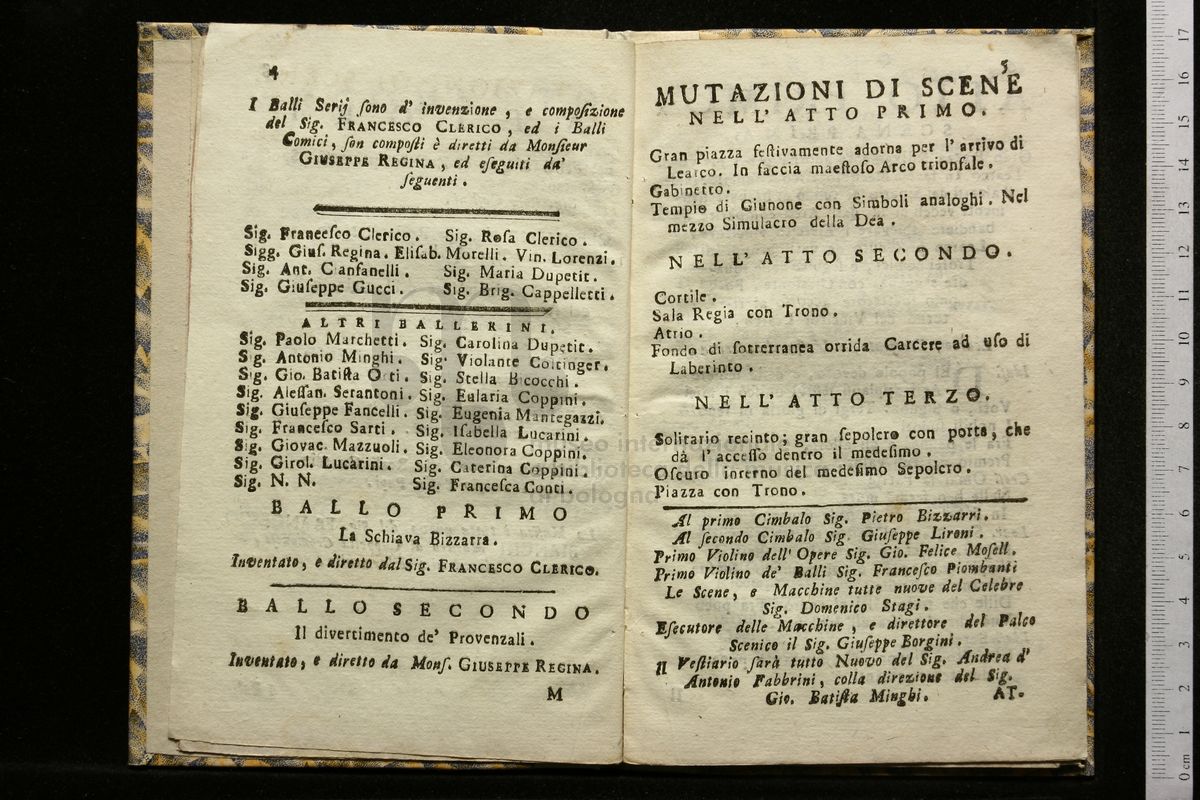 4
I Balli Serij ſono d' invenzione , e compoſizione
del Sig. FRANCESCO CLERICO , ed i Balli
Comici , ſon compoſti è diretti da Monſieur
GIUSEPPE REGINA , ed eſeguiti da'
ſeguenti .
Sig. Franceſco Clerico . Sig. Roſa Clerico .
Sigg. Giuſ. Regina. Eliſab. Morelli. Vin. Lorenzi.
Sig. Ant. Cianfanelli . Sig. Maria Dupetit.
Sig. Giuſeppe Gucci . Sig. Brig. Cappelletti .
ALTRI BALLERINI.
Sig. Paolo Marchetti. Sig. Carolina Dupetit.
Sig. Antonio Minghi. Sig. Violante Cottinger.
Sig. Gio. Batiſta Orti. Sig. Stella Bicocchi.
Sig. Aleſſan. Serantoni. Sig. Eularia Coppini.
Sig. Giuſeppe Fancelli. Sig. Eugenia Mantegazzi.
Sig. Franceſco Sarti . Sig. Iſabella Lucarini.
Sig. Giovac. Mazzuoli. Sig. Eleonora Coppini.
Sig. Girol. Lucarini. Sig. Caterina Coppini.
Sig. N. N. Sig. Franceſca Conti.
BALLO PRIMO
La Schiava Bizzarra.
Inventato, e diretto dal Sig. FRANCESCO CLERICO.
BALLO SECONDO
Il divertimento de' Provenzali .
Inventato, e diretto da Monſ. GIUSEPPE REGINA.
M
5
MUTAZIONI DI SCENE
NELL' ATTO PRIMO.
Gran piazza feſtivamente adorna per l' arrivo di
Learco. In faccia maeſtoſo Arco trionfale .
Gabinetto.
Tempio di Giunone con Simboli analoghi . Nel
mezzo Simulacro della Dea .
NELL' ATTO SECONDO.
Cortile .
Sala Regia con Trono.
Atrio .
Fondo di ſotterranea orrida Carcere ad uſo di
Laberinto .
NELL' ATTO TERZO.
Solitario recinto; gran ſepolcro con porta, che
dà l' acceſſo dentro il medeſimo .
Oſcuro interno del medeſimo Sepolcro.
Piazza con Trono.
Al primo Cimbalo Sig. Pietro Bizzarri.
Al ſecondo Cimbalo Sig. Giuſeppe Lironi.
Primo Violino dell' Opere Sig. Gio. Felice Moſell.
Primo Violino de' Balli Sig. Franceſco Piombanti
Le Scene, e Macchine tutte nuove del Celebre
Sig. Domenico Stagi.
Eſecutore delle Macchine , e direttore del Palco
Scenico il Sig. Giuſeppe Borgini.
Il Veſtiario ſarà tutto Nuovo del Sig. Andrea d'
Antonio Fabbrini, colla direzione del Sig.
Gio. Batiſta Minghi. AT-
0 cm 1 2 3 4 5 6 7 8 9 10 11 12 13 14 15 16 17